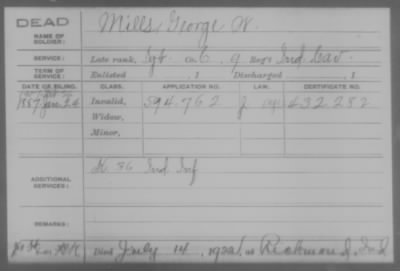 DEAD
NAME OF SOLDIER: Mills, George W.
SERVICE: Late rank, Sgt. Co. C, 9 Reg't Ind Cav.
TERM OF SERVICE: Enlisted , 1 Discharged , 1
DATE OF FILING. CLASS. APPLICATION NO. LAW. CERTIFICATE NO.
1887 Jan 26 Invalid, 594.762 432.282
Widow,
Minor,
ADDITIONAL SERVICES: K 36 Ind Inf
REMARKS:
Died July 14, 1922, at Richmond, Ind